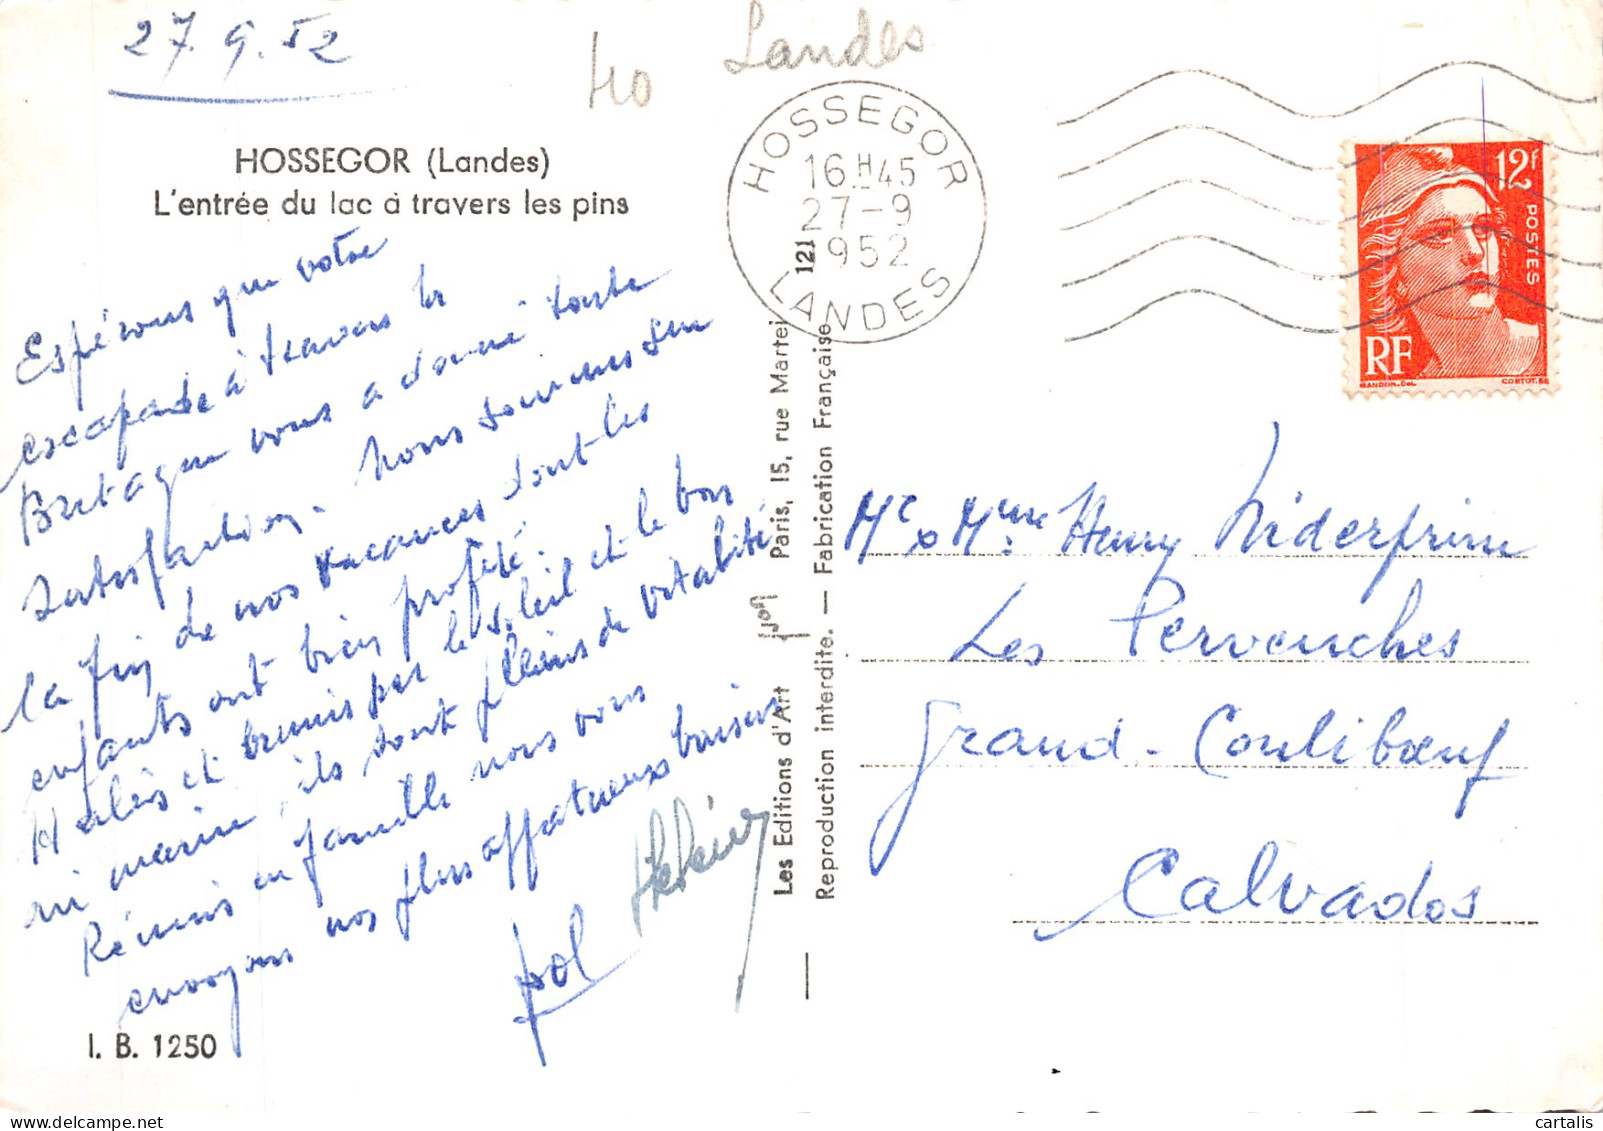 27.9.52
40 Landes
HOSSEGOR (Landes)
L'entrée du lac à travers les pins
Espérons que votre
escapade à travers la
Bretagne vous a donné toute
satisfaction. Nous sommes sur
la fin de nos vacances dont les
enfants ont bien profité.
Halés et brunis par le soleil et le bon
air marin, ils sont pleins de vitalité
Réunis en famille nous vous
envoyons nos plus affectueux baisers
pol
I. B. 1250
HOSSEGOR
16 H 45
27-9
1952
LANDES
121
Les Editions d'Art Yvon Paris, 15, rue Martel
Reproduction interdite. — Fabrication Française
12f
POSTES
RF
GANDON.DEL.
CORTOT.SC
Mr & Mme Henry Niderprim
Les Pervenches
Grand-Coulibœuf
Calvados
cartalis